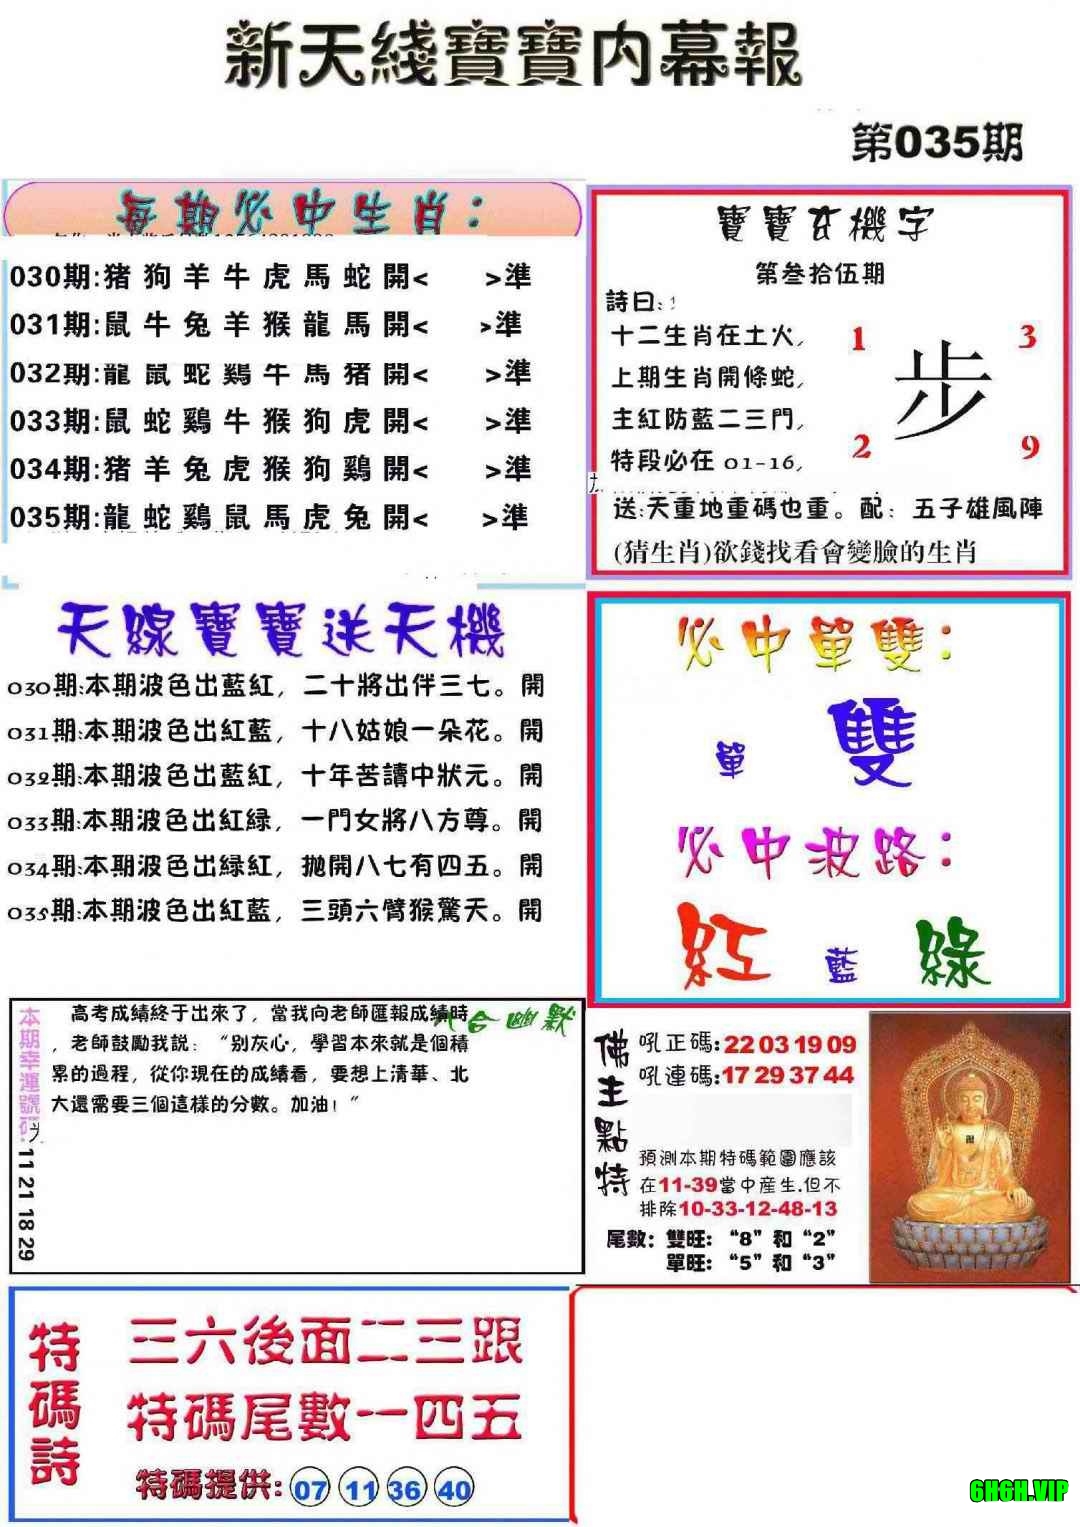 新天綫寶寶内幕報
第035期
每期必中生肖：
030期:猪狗羊牛虎馬蛇開< >準
031期:鼠牛兔羊猴龍馬開< >準
032期:龍鼠蛇鷄牛馬猪開< >準
033期:鼠蛇鷄牛猴狗虎開< >準
034期:猪羊兔虎猴狗鷄開< >準
035期:龍蛇鷄鼠馬虎兔開< >準
寶寶玄機字
第叁拾伍期
詩曰:
十二生肖在土火,
上期生肖開條蛇,
主紅防藍二三門,
特段必在 01-16,
1 3
步
2 9
送:天重地重碼也重。配：五子雄風陣
(猜生肖)欲錢找看會變臉的生肖
天線寶寶送天機
030期:本期波色出藍紅，二十將出伴三七。開
031期:本期波色出紅藍，十八姑娘一朵花。開
032期:本期波色出藍紅，十年苦讀中狀元。開
033期:本期波色出紅緑，一門女將八方尊。開
034期:本期波色出緑紅，抛開八七有四五。開
035期:本期波色出紅藍，三頭六臂猴驚天。開
必中單雙：
單 雙
必中波路：
紅 藍 綠
本期幸運號碼:
11 21 18 29
合幽默
高考成績終于出來了，當我向老師匯報成績時
，老師鼓勵我説：“别灰心，學習本來就是個積
累的過程，從你現在的成績看，要想上清華、北
大還需要三個這樣的分數。加油！”
佛主點特
吼正碼:22 03 19 09
吼連碼:17 29 37 44
預測本期特碼範圍應該
在11-39當中産生.但不
排除10-33-12-48-13
尾數：雙旺：“8”和“2”
單旺：“5”和“3”
特碼詩
三六後面二三跟
特碼尾數一四五
特碼提供: 07 11 36 40
6H6H.VIP